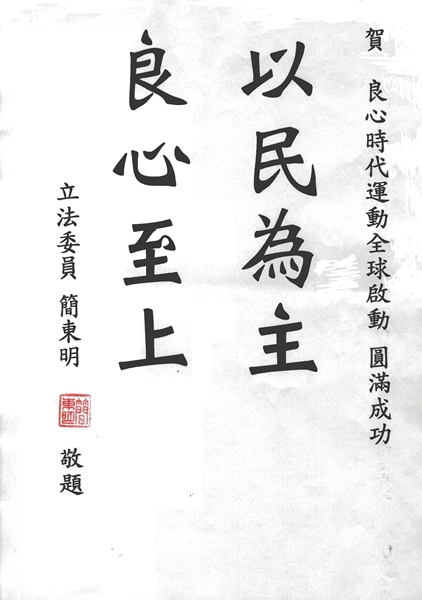 賀 良心時代運動全球啟動 圓滿成功
以民為主
良心至上
立法委員 簡東明 簡東明 敬題